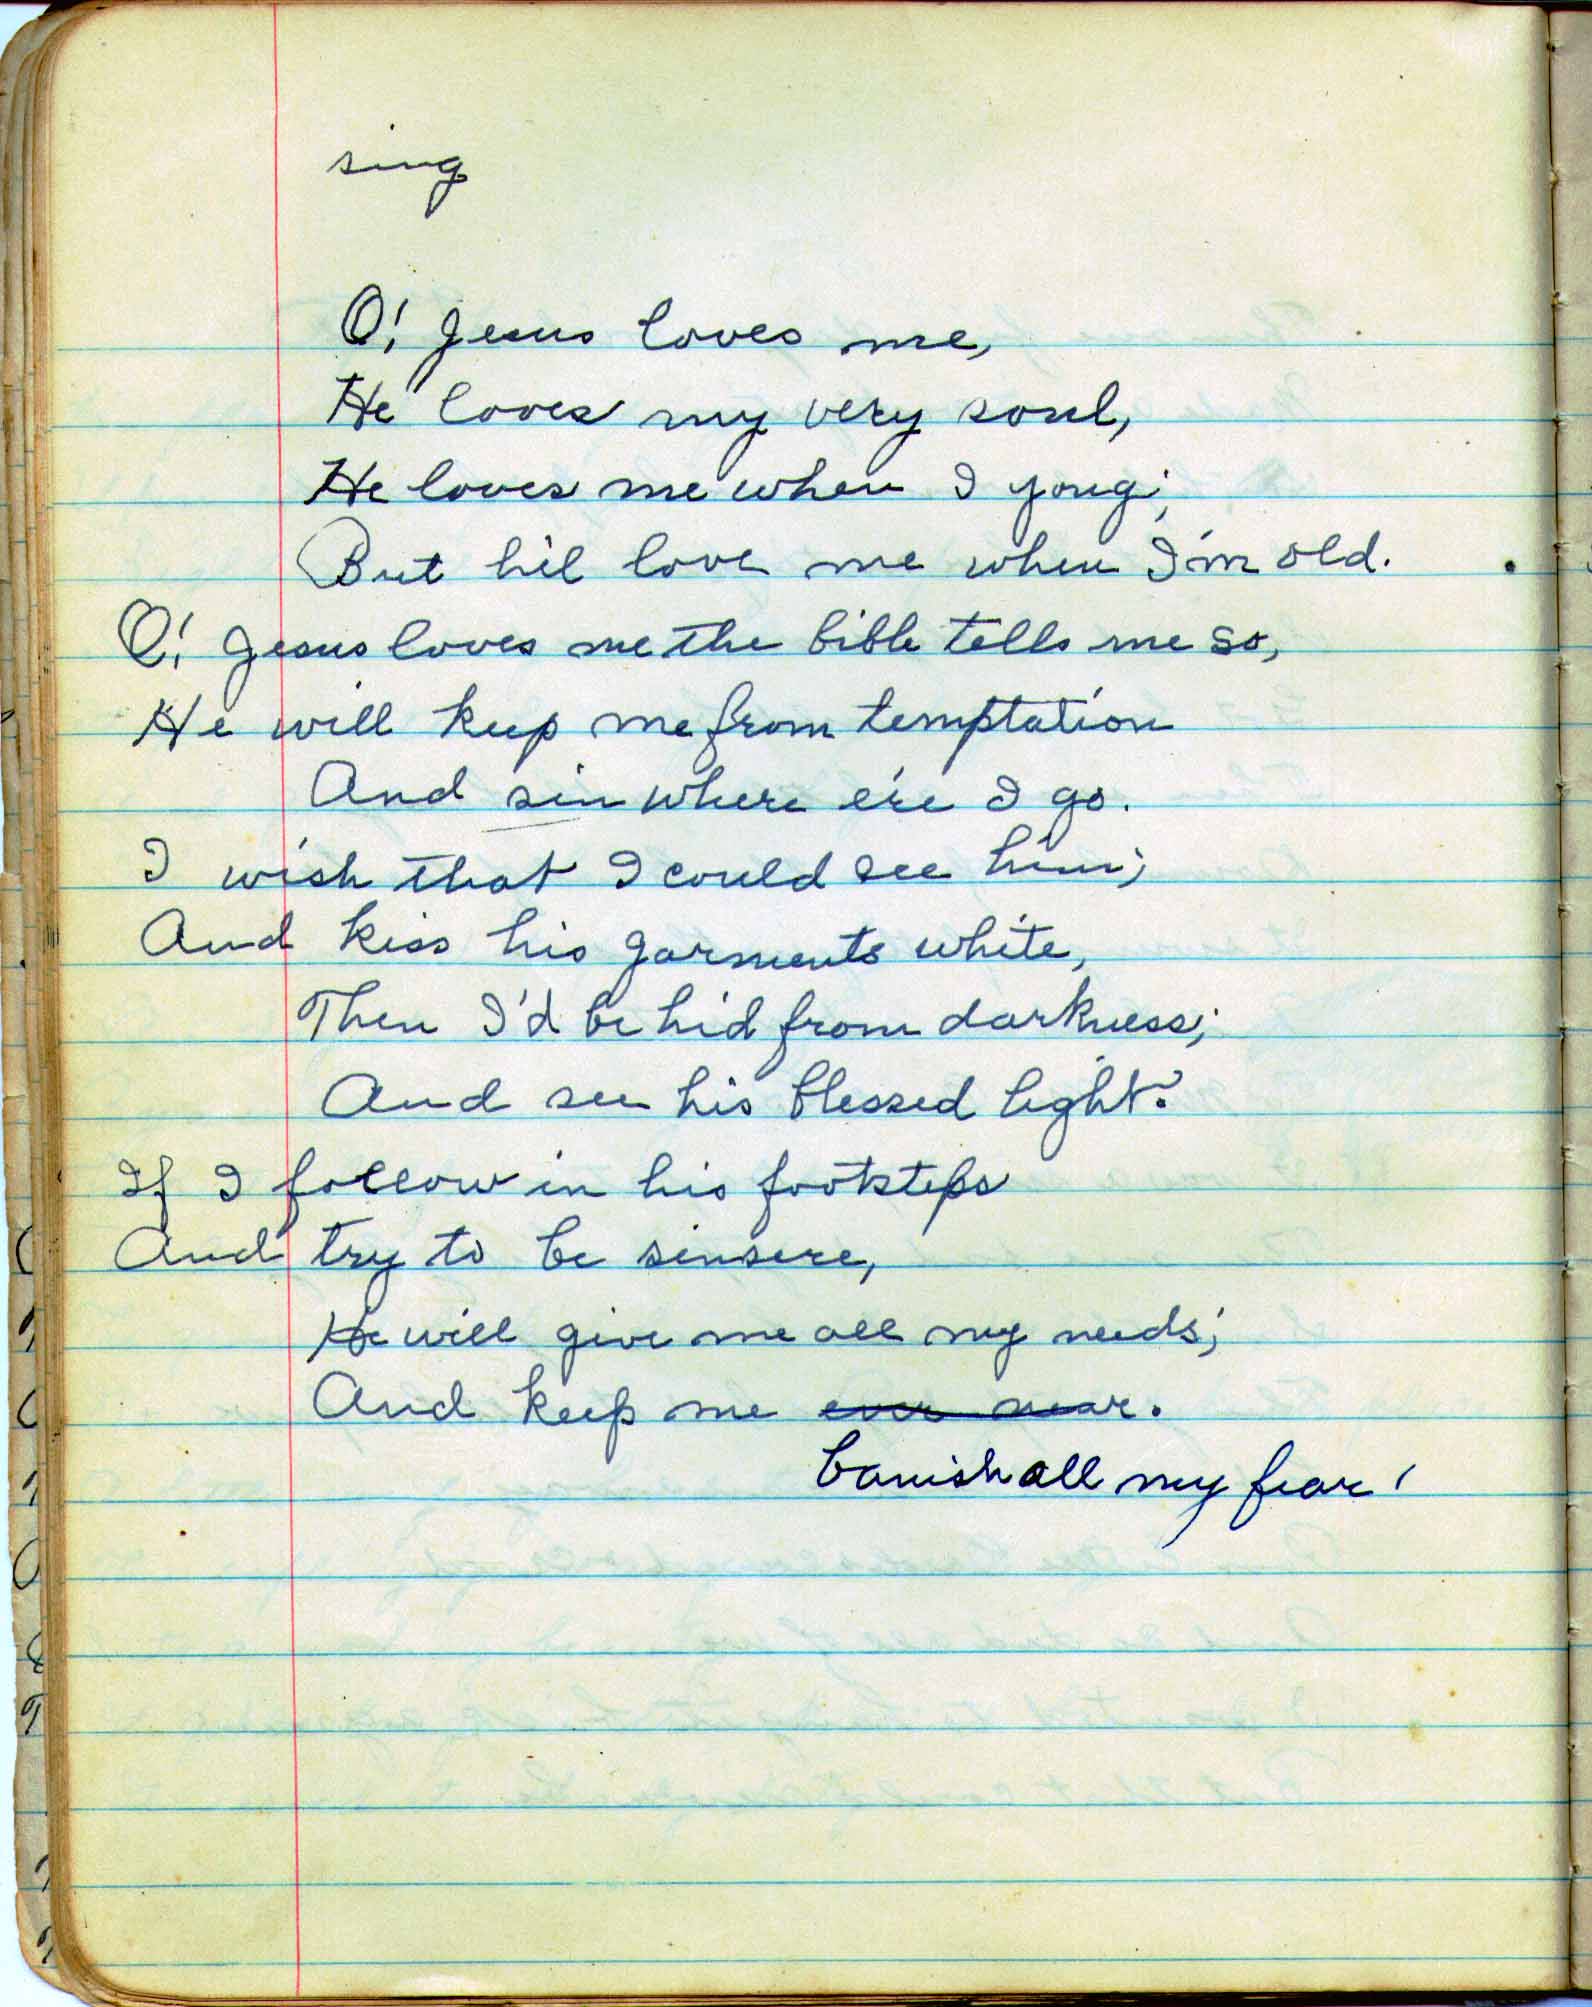 sing
O! Jesus loves me,
He loves my very soul,
He loves me when I youg;
But hil love me when I'm old.
O! Jesus loves me the bible tells me so,
He will keep me from temptation
And sin where e're I go.
I wish that I could see him;
And kiss his garments white,
Then I'd be hid from darkness;
And see his blessed light.
If I follow in his footsteps
And try to be sinsere,
He will give me all my needs;
And keep me ever near.
banish all my fear!